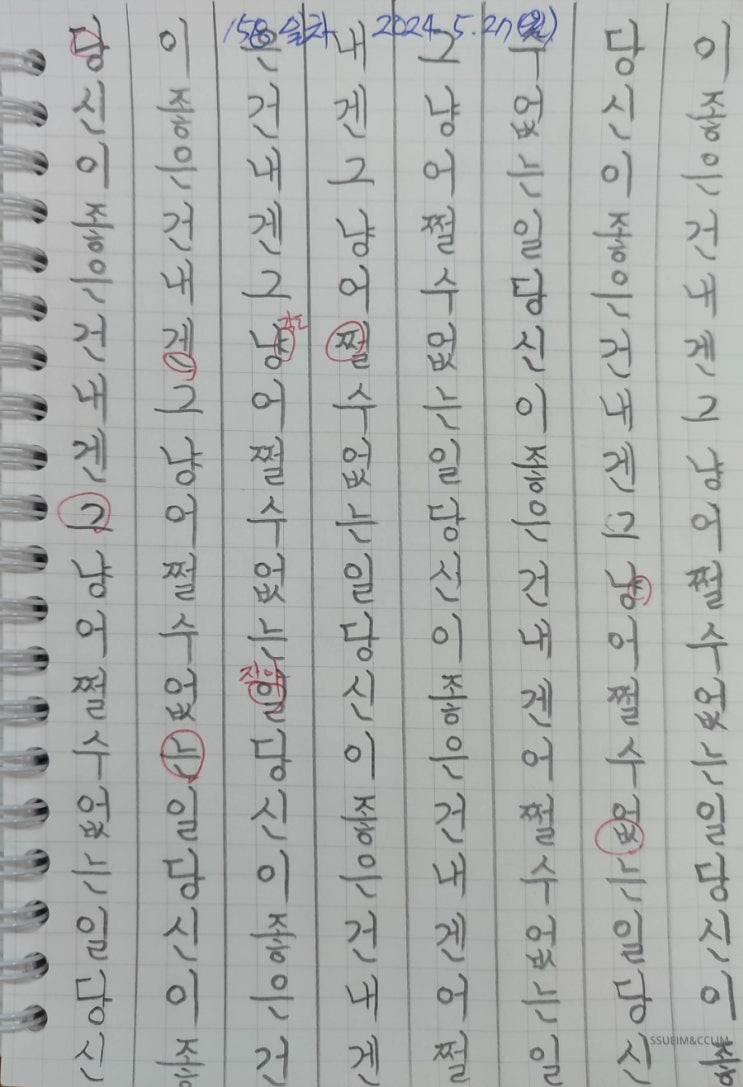 158일차 2024.5.27(월)
당신이좋은건내겐그냥어쩔수없는일당신
이좋은건내겐그냥어쩔수없는일당신이좋
은건내겐그냥어쩔수없는일당신이좋은건
내겐그냥어쩔수없는일당신이좋은건내겐
그냥어쩔수없는일당신이좋은건내겐어쩔
수없는일당신이좋은건내겐어쩔수없는일
당신이좋은건내겐그냥어쩔수없는일당신
이좋은건내겐그냥어쩔수없는일당신이좋
SSUEIM&CCLIM